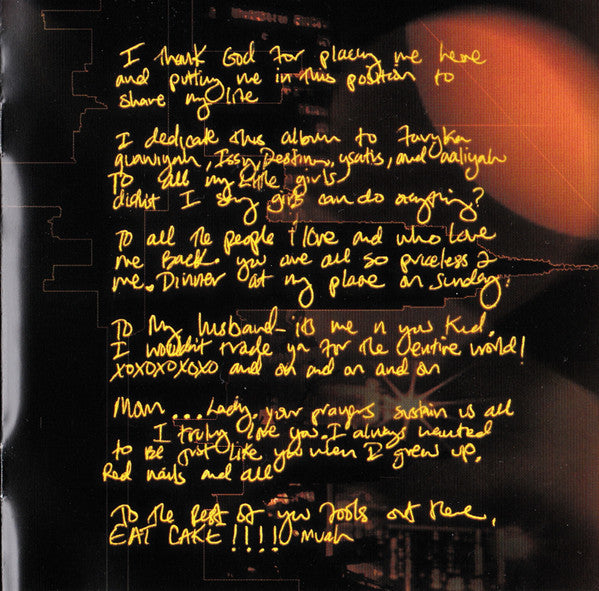 I thank God for placing me here
and putting me in this position to
share my life
I dedicate this album to Taryka
quawiyah, Issy, Destiny, ysatis, and aaliyah
To all my little girls
didnt I say girls can do anything?
To all the people i love and who love
me Back. you are all so priceless 2
me. Dinner at my place on Sunday!
To My husband- its me n you Kid.
I wouldnt trade ya for the entire world!
XOXOXOXOXO and on and on and on
Mom... Lady. your prayers sustain us all
I truly love you. I always wanted
to Be just like you when I grew up.
Red nails and all
To the Rest of you fools out there,
EAT CAKE!!!! Muah